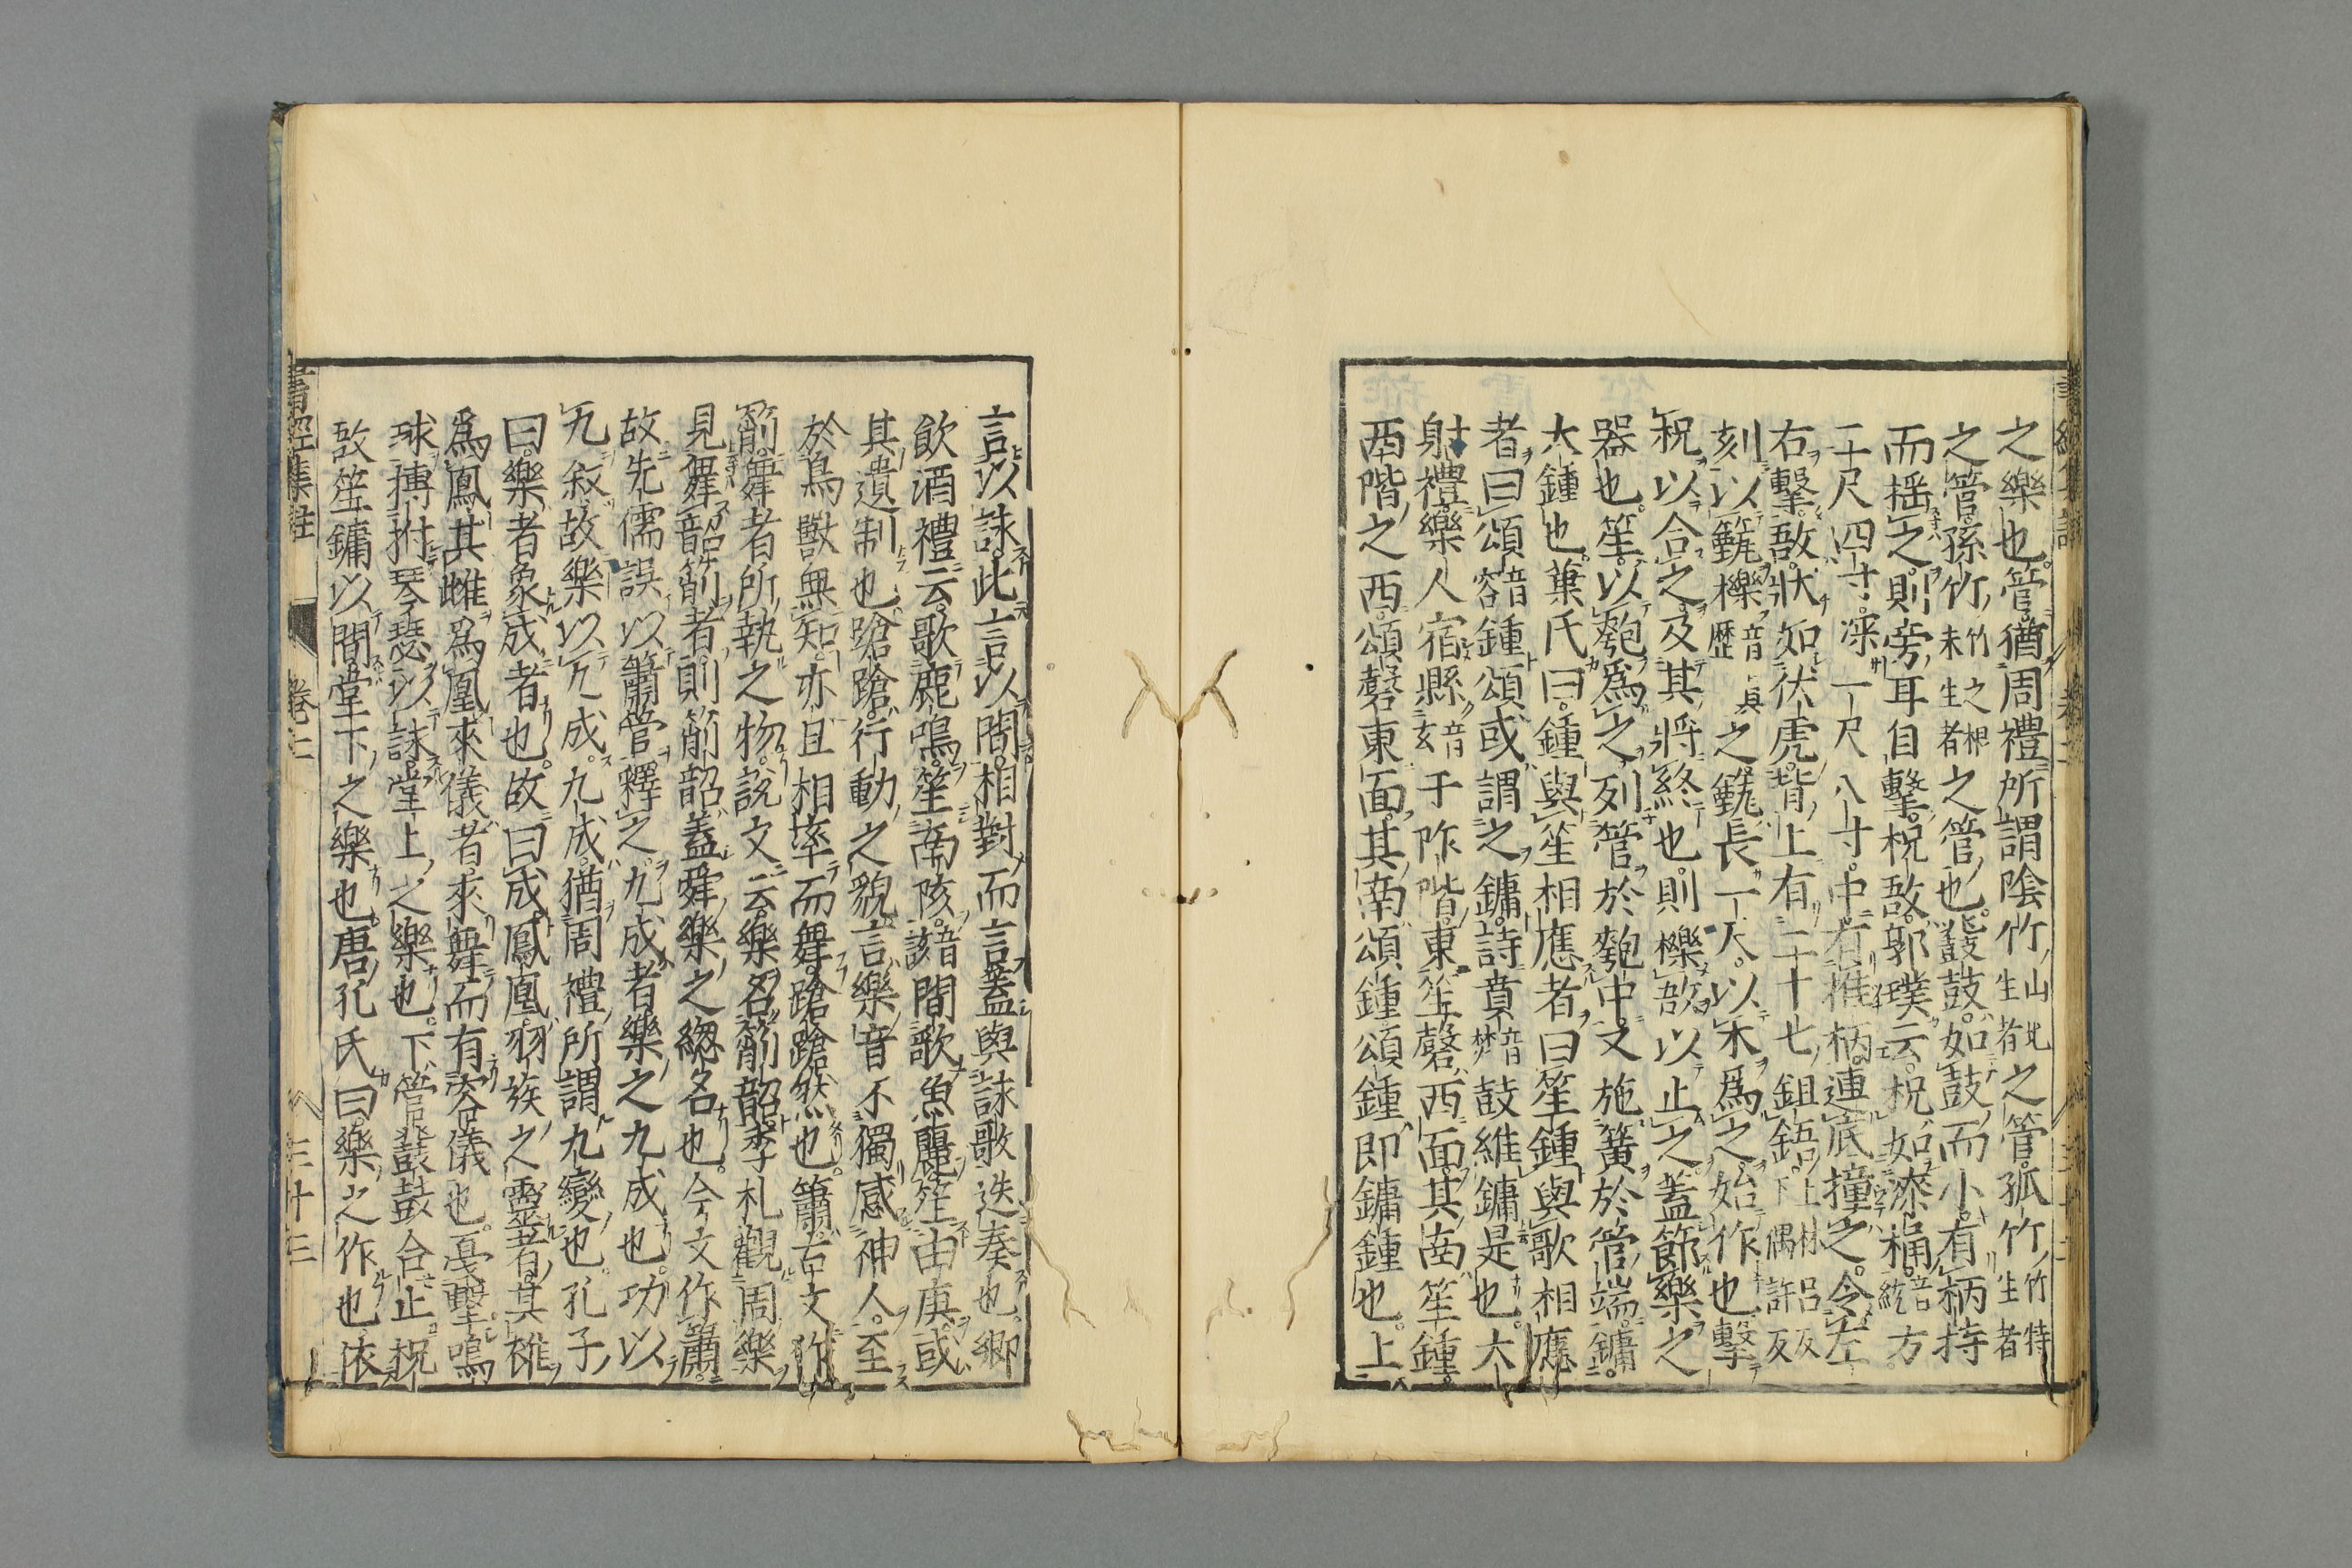 之樂也管猶周禮所謂陰竹生山北者之管孤竹竹特生者
之管孫竹竹之根未生者之管也鼗鼓如鼓而小有柄持
而搖之則旁耳自擊柷敔郭璞云柷如漆桶音統方
二尺四寸深一尺八寸中有椎柄連底撞之令左
右擊敔狀如伏虎背上有二十七鉏鋙上牀呂反下偶許反
刻以籈櫟音歷之籈長一尺以木爲之始作也擊
柷以合之及其將終也則櫟敔以止之蓋節樂之
器也笙以匏爲之列管於匏中又施簧於管端鏞
大鍾也葉氏曰鍾與笙相應者曰笙鍾與歌相應
者曰頌音容鍾頌或謂之鏞詩賁音焚鼓維鏞是也大
射禮樂人宿縣音玄于阼階東笙磬西面其南笙鍾
西階之西頌磬東面其南頌鍾頌鍾即鏞鍾也上
言以詠此言以間相對而言蓋與詠歌迭奏也鄉
飲酒禮云歌鹿鳴笙南陔音該間歌魚麗笙由庚或
其遺制也蹌蹌行動之貌言樂音不獨感神人至
於鳥獸無知亦且相率而舞蹌蹌然也簫古文作
箾舞者所執之物說文云樂名箾韶季札觀周樂
見舞韶箾者則箾韶蓋舜樂之緫名也今文作簫
故先儒誤以簫管釋之九成者樂之九成也功以
九叙故樂以九成九成猶周禮所謂九變也孔子
曰樂者象成者也故曰成鳳凰羽族之靈者其雄
爲鳳其雌爲凰來儀者來舞而有容儀也戞擊鳴
球搏拊琴瑟以詠堂上之樂也下管鼗鼓合止柷
敔笙鏞以間堂下之樂也唐孔氏曰樂之作也依
書經集註 卷二 三十三